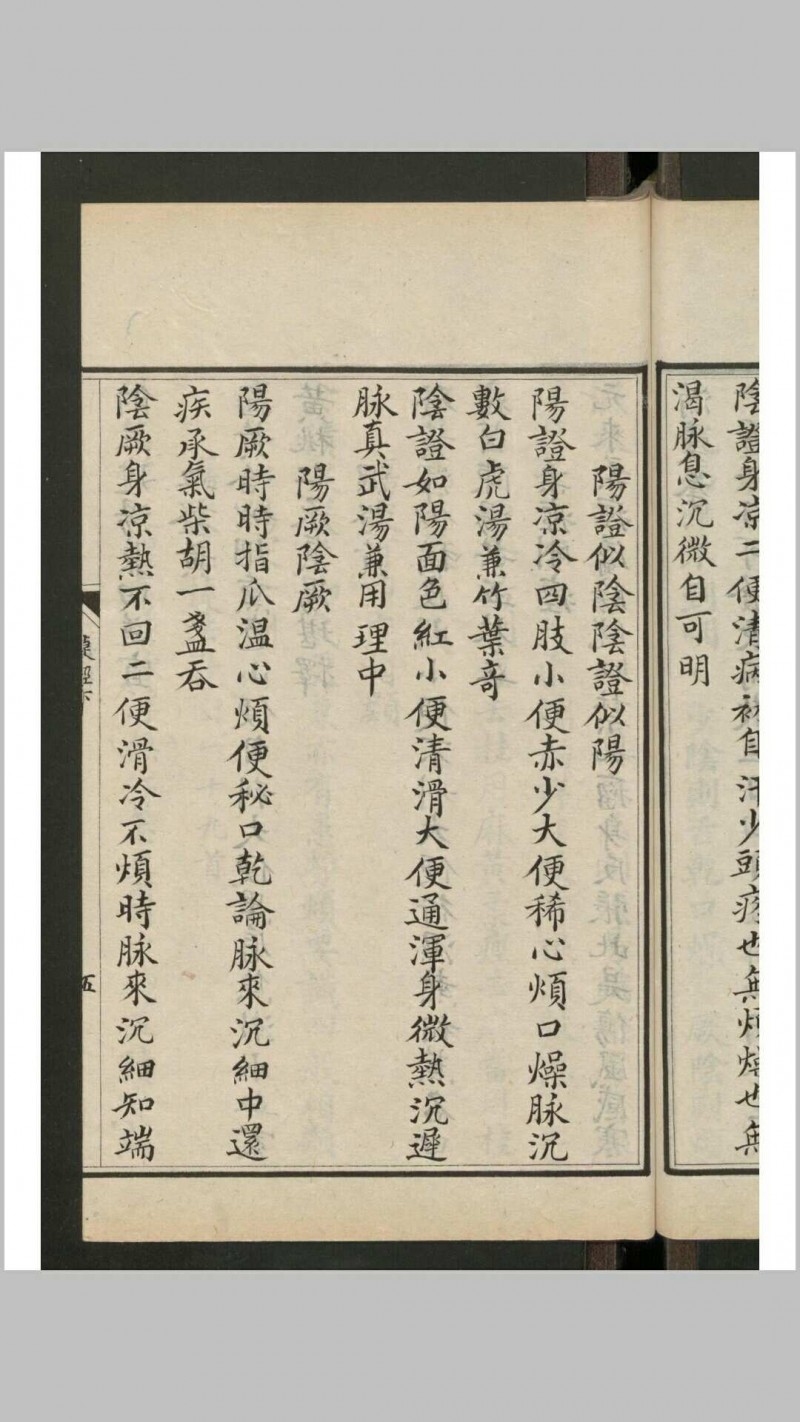 陰證身凉二便清病初自汗少頭疼也無煩燥也無
渴脉息沉微自可明
陽證似陰陰證似陽
陽證身凉冷四肢小便赤少大便稀心煩口燥脉沉
數白虎湯兼竹葉奇
陰證如陽面色紅小便清滑大便通渾身微熱沉遲
脉真武湯兼用理中
陽厥陰厥
陽厥時時指爪温心煩便秘口乾論脉來沉細中還
疾承氣柴胡一盞吞
陰厥身凉熱不回二便滑冷不煩時脉來沉細知端
五